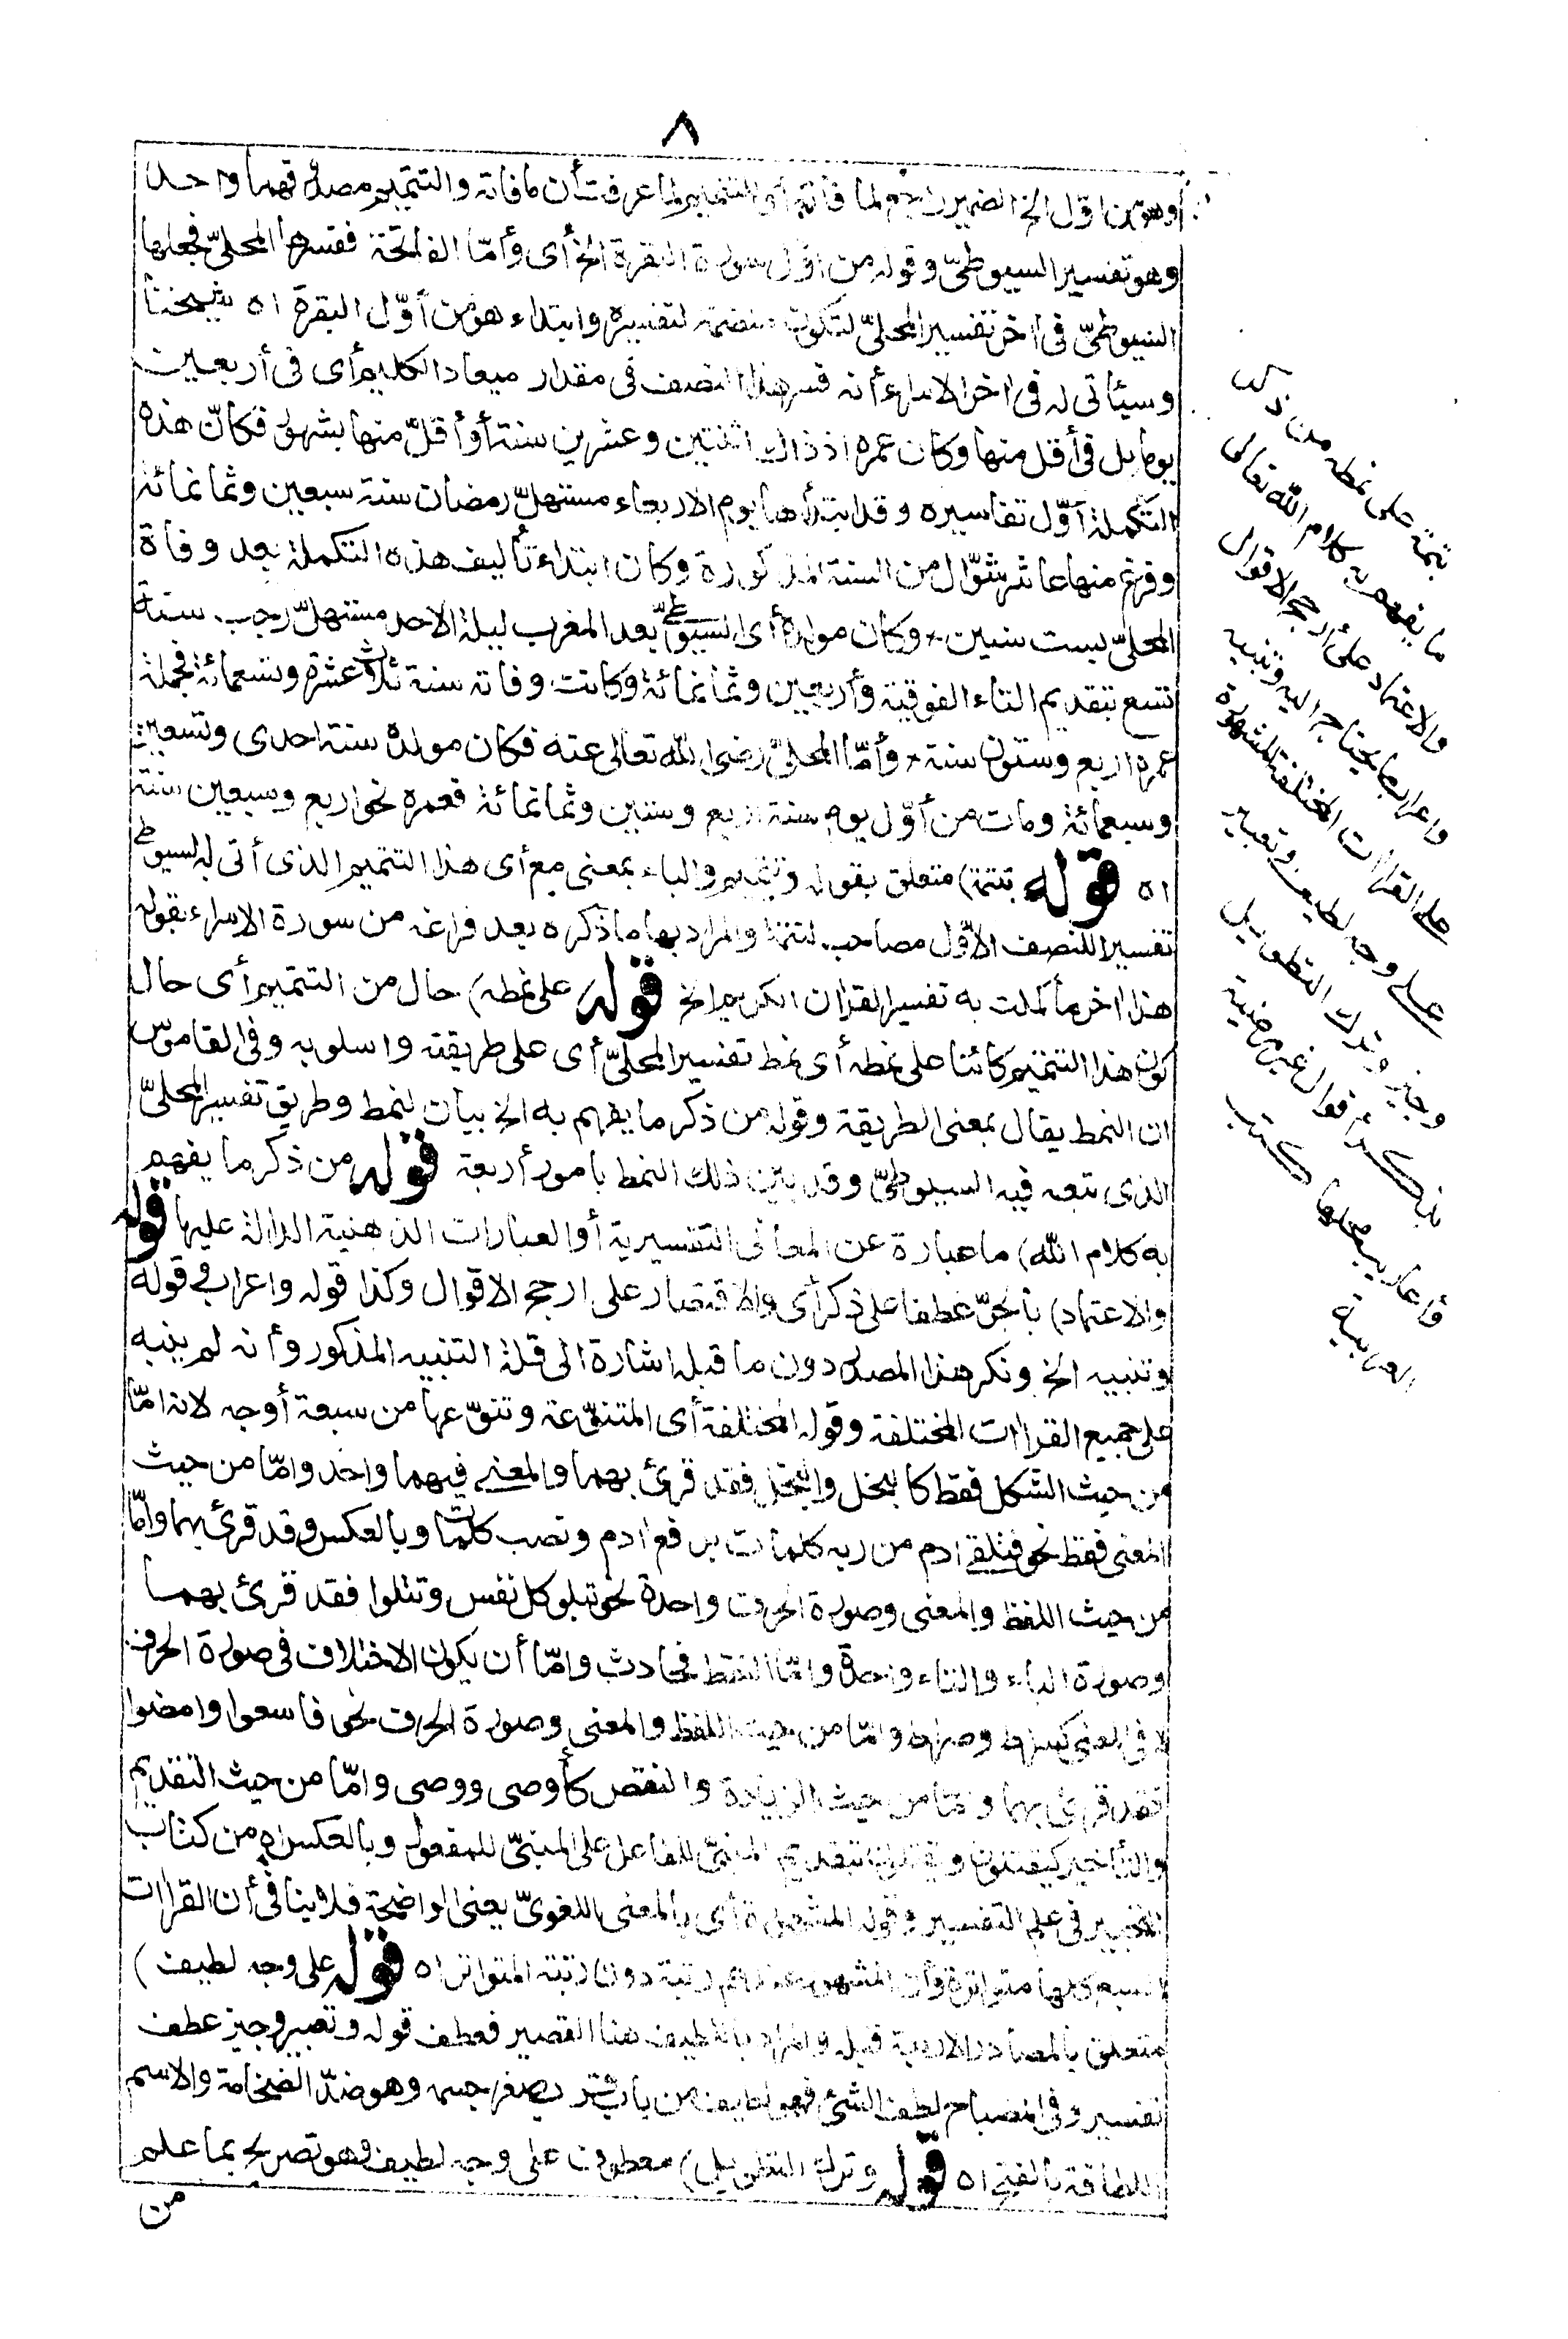 ٨
وهو من اوّل الخ الضمير راجع لما فاته أو التتميم لما عرفت أن ما فاته والتتميم مصدوقهما واحد
وهو تفسير السيوطىّ وقوله من اوّل سورة البقرة الخ أى وأمّا الفاتحة ففسرها المحلىّ فجعلها
السيوطىّ فى اخر تفسير المحلىّ لتكون منضمة لتفسيره وابتداء هو من أوّل البقرة اه شيخنا
وسيأتى له فى اخر الاسراء أنه فسر هذا النصف فى مقدار ميعاد الكليم أى فى أربعين
يوما بل فى أقل منها وكان عمره اذ ذاك اثنتين وعشرين سنة أو أقلّ منها بشهور فكانّ هذه
التكملة أوّل تفاسيره وقد ابتدأها يوم الاربعاء مستهلّ رمضان سنة سبعين وثمانمائة
وفرغ منها عاشر شوّال من السنة المذكورة وكان ابتداء تأليف هذه التكملة بعد وفاة
المحلىّ بست سنين وكان مولده أى السيوطىّ بعد المغرب ليلة الاحد مستهلّ رجب سنة
تسع بتقديم التاء الفوقية وأربعين وثمانمائة وكانت وفاته سنة ثلاث عشرة وتسعمائة فجملة
عمره اربع وستون سنة وأمّا المحلىّ رضى الله تعالى عنه فكان مولده سنة احدى وتسعين
وسبعمائة ومات من أوّل يوم سنة اربع وستين وثمانمائة فعمره نحو اربع وسبعين سنة
اه قوله بتتمة) متعلق بقوله وتتميم والباء بمعنى مع أى هذا التتميم الذى أتى به السيوطى
تفسيرا للنصف الاوّل مصاحب لتتمة والمراد بها ما ذكره بعد فراغه من سورة الاسراء بقوله
هذا اخر ما كملت به تفسير القران الكريم الخ قوله على نمطه) حال من التتميم أى حال
كون هذا التتميم كائنا على نمطه أى نمط تفسير المحلىّ أى على طريقته واسلوبه وفى القاموس
ان النمط يقال بمعنى الطريقة وقوله من ذكر ما يفهم به الخ بيان لنمط وطريق تفسير المحلىّ
الذى تبعه فيه السيوطىّ وقد بين ذلك النمط بامور أربعة قوله من ذكر ما يفهم
به كلام الله) ما عبارة عن المعانى التفسيرية أو العبارات الذهنية الدالة عليها قوله
والاعتماد) بالجرّ عطفا على ذكر أى والاقتصار على ارجح الاقوال وكذا قوله واعراب فى قوله
وتنبيه الخ ونكر هذا المصدر دون ما قبله اشارة الى قلة التنبيه المذكور وأنه لم ينبه
على جميع القراات المختلفة وقوله المختلفة أى المتنوّعة وتنوّعها من سبعة أوجه لانه امّا
من حيث الشكل فقط كالبخل والبخل فقد قرئ بهما والمعنى فيهما واحد وامّا من حيث
المعنى فقط نحو فتلقى ادم من ربه كلمات برفع ادم ونصب كلمات وبالعكس وقد قرئ بهما وامّا
من حيث اللفظ والمعنى وصورة الحرف واحدة نحو تبلو كل نفس وتتلوا فقد قرئ بهما
وصورة الباء والتاء واحدة وامّا النقط فحادث وامّا أن يكون الاختلاف فى صورة الحرف
لا فى المعنى كسراط وصراط وامّا من حيث اللفظ والمعنى وصورة الحرف نحو فاسعوا وامضوا
فقد قرئ بهما وامّا من حيث الزيادة والنقص كأوصى ووصى وامّا من حيث التقديم
والتأخير كيقتلون ويقتلون بتقديم المبنىّ للفاعل على المبنىّ للمفعول وبالعكس اه من كتاب
التحبير فى علم التفسير وقوله المشهورة أى بالمعنى اللغوىّ يعنى الواضحة فلا ينافى أن القراات
السبع كلها متواترة وأن المشهور عندهم رتبة دون رتبة المتواتر اه قوله على وجه لطيف)
متعلق بالمصادر الاربعة قبله والمراد باللطيف هنا القصير فعطف قوله وتعبير وجيز عطف
تفسير وفى المصباح لطف الشئ فهو لطيف من باب قرب صغر جسمه وهو ضدّ الضخامة والاسم
اللطافة بالفتح اه قوله وترك التطويل) معطوف على وجه لطيف وهو تصريح بما علم
من
بتتمة على نمطه من ذكر
ما يفهم به كلام الله تعالى
والاعتماد على أرجح الاقوال
واعراب ما يحتاج اليه وتنبيه
على القراات المختلفة المشهورة
على وجه لطيف وتعبير
وجيز وترك التطويل
بذكر أقوال غير مرضية
وأعاريب محلها كتب
العربية